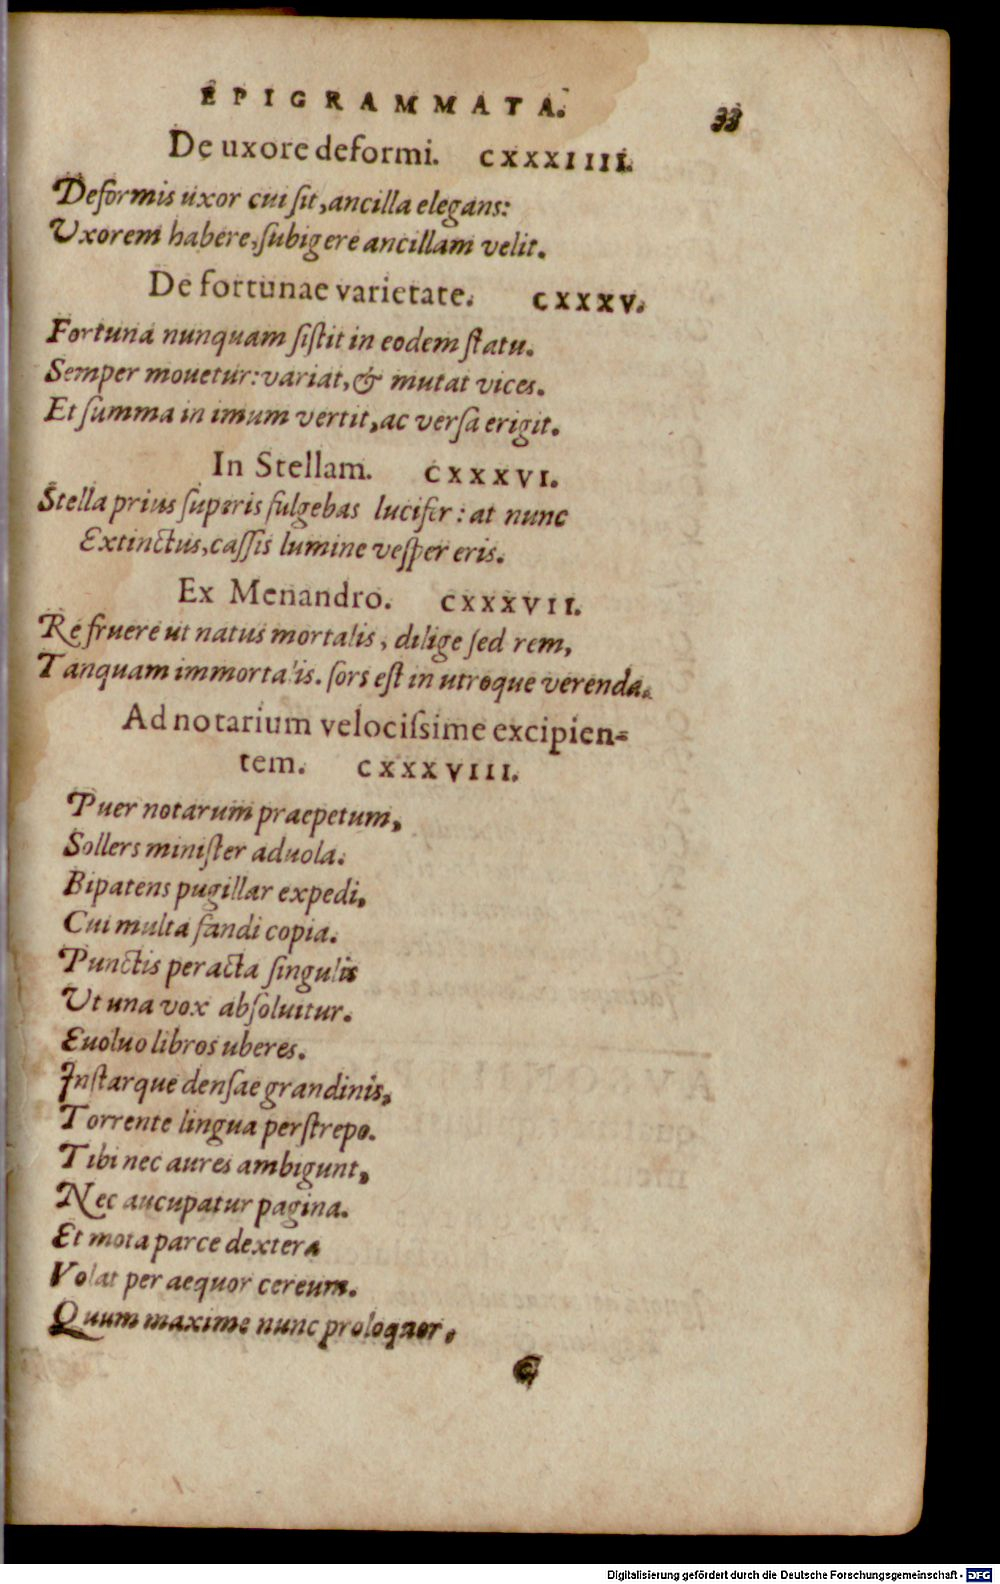 EPIGRAMMATA. 33
De uxore deformi. CXXXIIII.
Deformis uxor cui ſit, ancilla elegans:
Vxorem habere, ſubigere ancillam velit.
De fortunae varietate. CXXXV.
Fortuna nunquam ſiſtit in eodem ſtatu.
Semper mouetur: variat, & mutat vices.
Et ſumma in imum vertit, ac verſa erigit.
In Stellam. CXXXVI.
Stella prius ſuperis fulgebas lucifer: at nunc
Extinctus, caſſis lumine veſper eris.
Ex Menandro. CXXXVII.
Re fruere ut natus mortalis, dilige ſed rem,
Tanquam immortalis. ſors eſt in utroque verenda.
Ad notarium velociſsime excipien-
tem. CXXXVIII.
Puer notarum praepetum,
Sollers miniſter aduola.
Bipatens pugillar expedi,
Cui multa fandi copia.
Punctis peracta ſingulis
Ut una vox abſoluitur.
Euoluo libros uberes.
Inſtarque denſae grandinis,
Torrente lingua perſtrepo.
Tibi nec aures ambigunt,
Nec aucupatur pagina.
Et mota parce dextera
Volat per aequor cereum.
Quum maxime nunc proloquor.
G
Digitalisierung gefördert durch die Deutsche Forschungsgemeinschaft - DFG